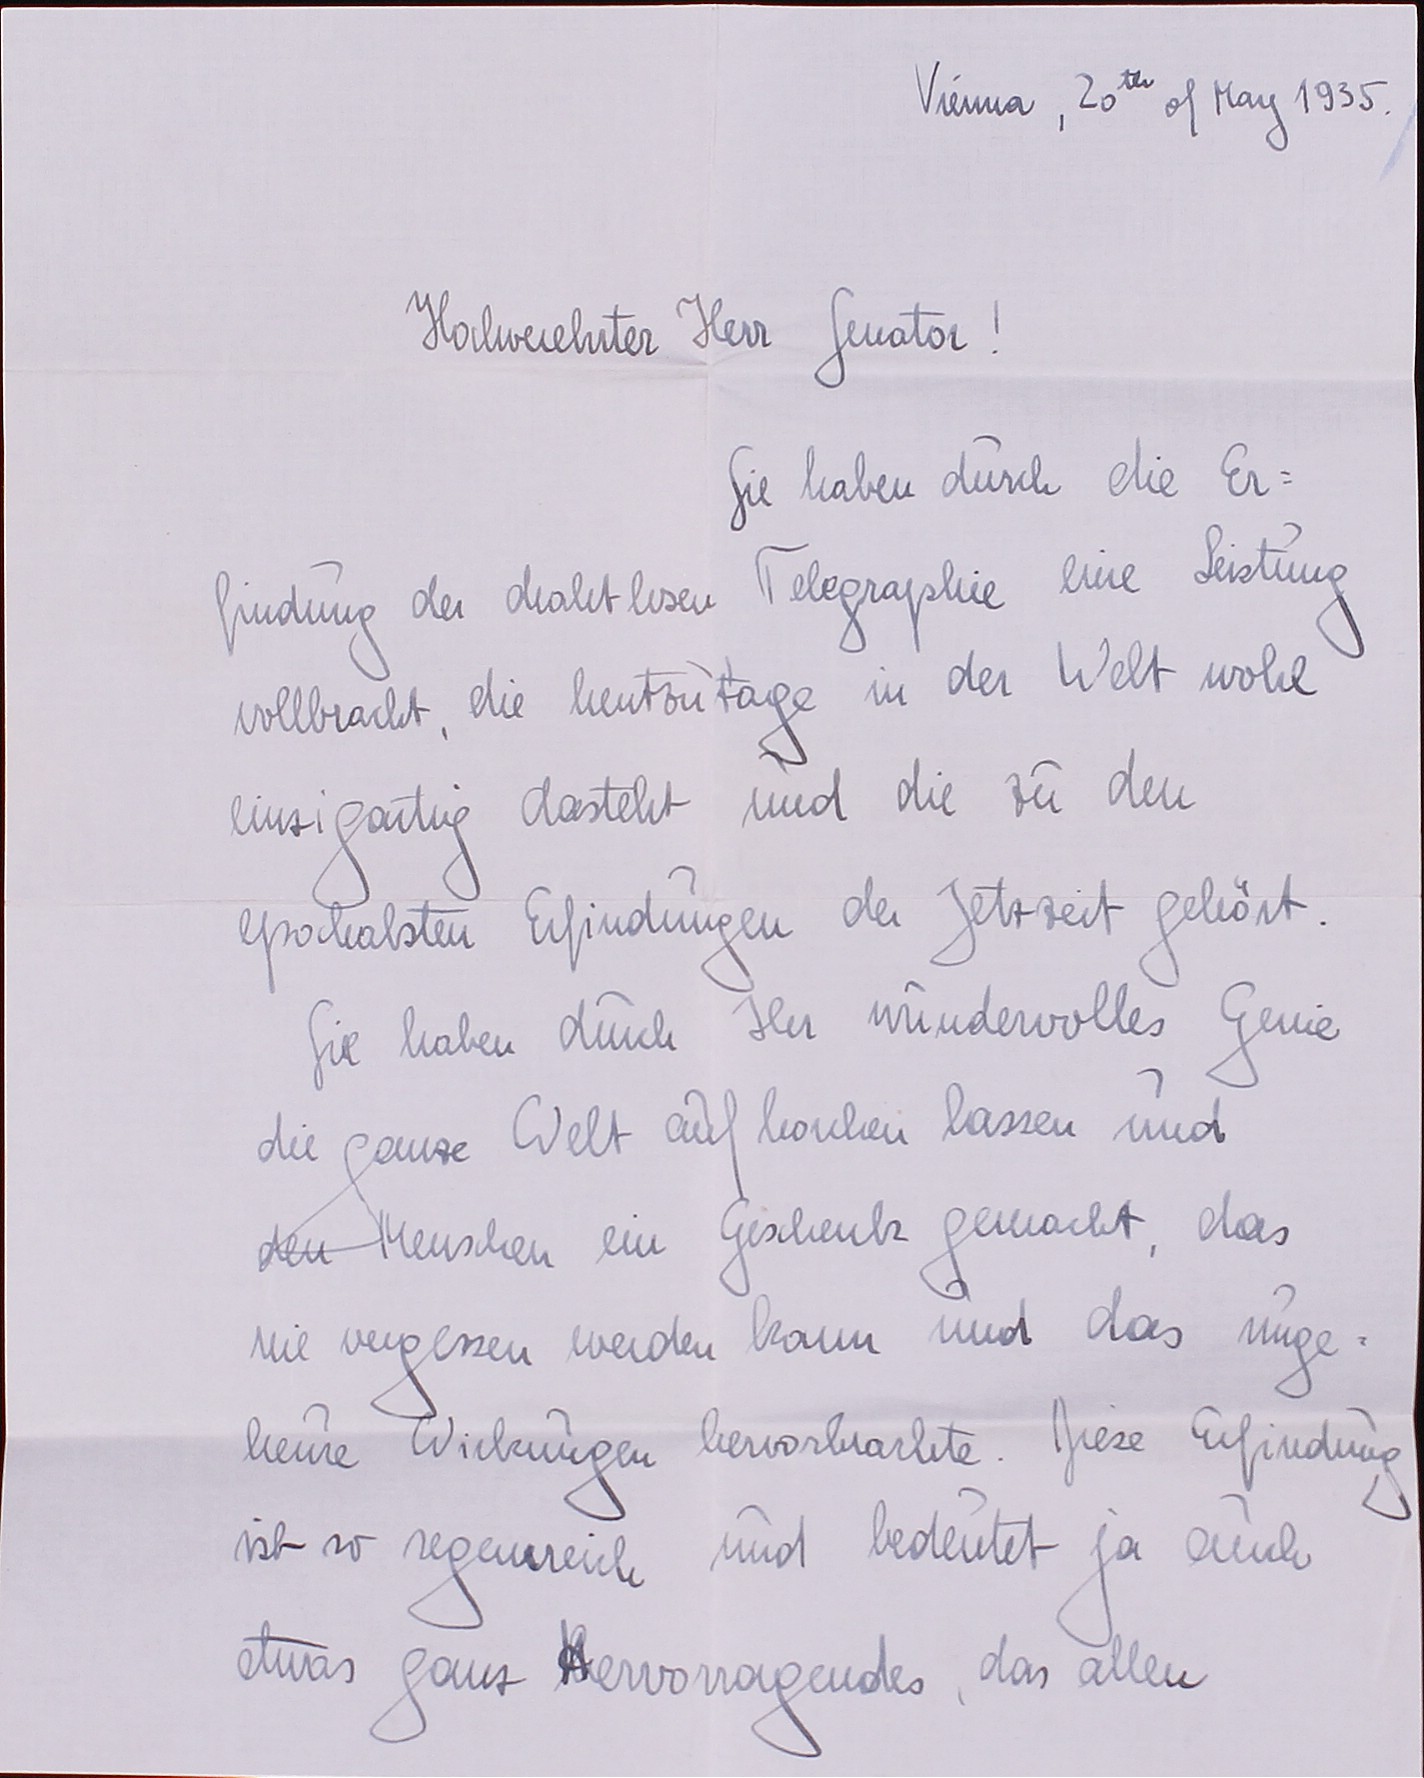 Vienna, 20th of May 1935.
Hochverehrter Herr Senator!
Sie haben durch die Er=
findung der drahtlosen Telegraphie eine Leistung
vollbracht, die heutzutage in der Welt wohl
einzigartig dasteht und die zu den
epochalsten Erfindungen der Jetztzeit gehört.
Sie haben durch Ihr wundervolles Genie
die ganze Welt aufhorchen lassen und
den Menschen ein Geschenk gemacht, das
nie vergessen werden kann und das unge=
heure Wirkungen hervorbrachte. Diese Erfindung
ist so segensreich und bedeutet ja auch
etwas ganz Hervorragendes, das allen